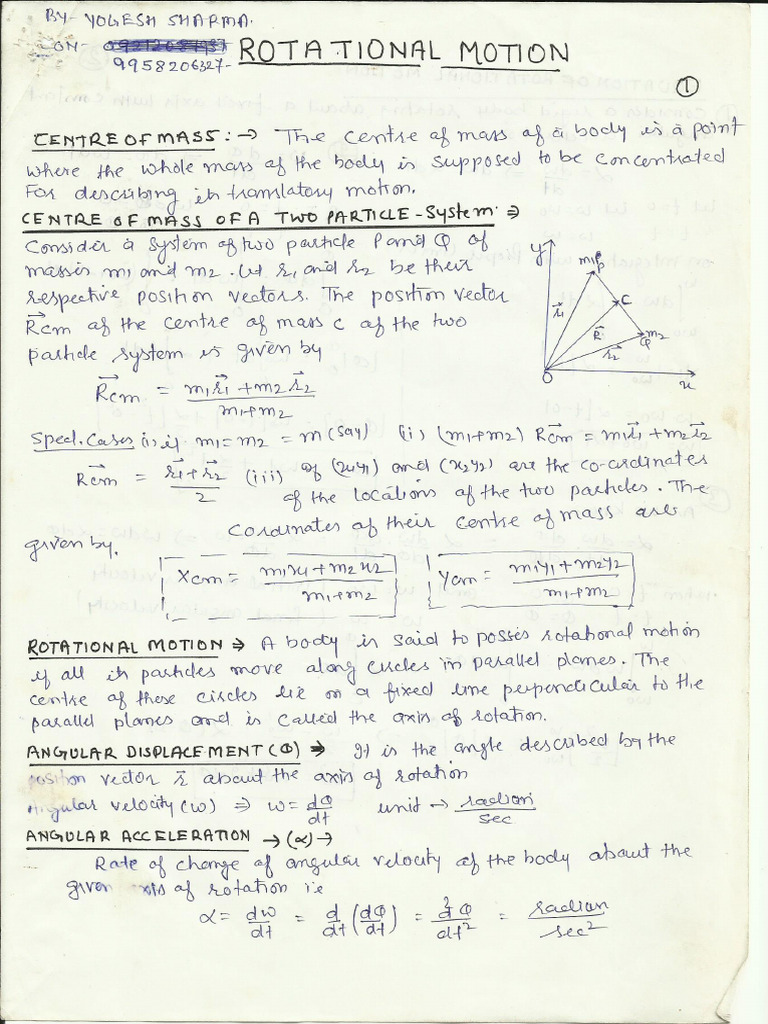 BY- YOGESH SHARMA.
CON-
9958206327-
ROTATIONAL MOTION
①
CENTRE OF MASS :-> The centre of mass of a body is a point
where the whole mass of the body is supposed to be concentrated
For describing its translatory motion.
CENTRE OF MASS OF A TWO PARTICLE-System ⇒
Consider a system of two particle P and Q of
masses m1 and m2. Let r⃗1 and r⃗2 be their
respective position vectors. The position vector
R⃗cm of the centre of mass C of the two
particle system is given by
R⃗cm = (m1r⃗1 + m2r⃗2) / (m1+m2)
y
m1 P
C
m2
Q
r⃗1
R⃗
r⃗2
O
x
Specl. Cases (i) if m1 = m2 = m (say) (ii) (m1+m2) R⃗cm = m1r⃗1 + m2r⃗2
R⃗cm = (r⃗1 + r⃗2) / 2 (iii) If (x1y1) and (x2y2) are the co-ordinates
of the locations of the two particles. The
Cordinates of their centre of mass are
given by.
Xcm = (m1x1 + m2x2) / (m1+m2) Ycm = (m1y1 + m2y2) / (m1+m2)
ROTATIONAL MOTION ⇒ A body is said to posses rotational motion
if all its particles move along circles in parallel planes. The
centre of these circles lie on a fixed line perpendicular to the
parallel planes and is called the axis of rotation.
ANGULAR DISPLACEMENT (Θ) ⇒ It is the angle described by the
position vector r⃗ about the axis of rotation
Angular velocity (w) ⇒ w = dθ/dt unit → radian/sec
ANGULAR ACCELERATION → (α) →
Rate of change of angular velocity of the body about the
given axis of rotation i.e
α = dw/dt = d/dt (dθ/dt) = d²θ/dt² = radian/sec²